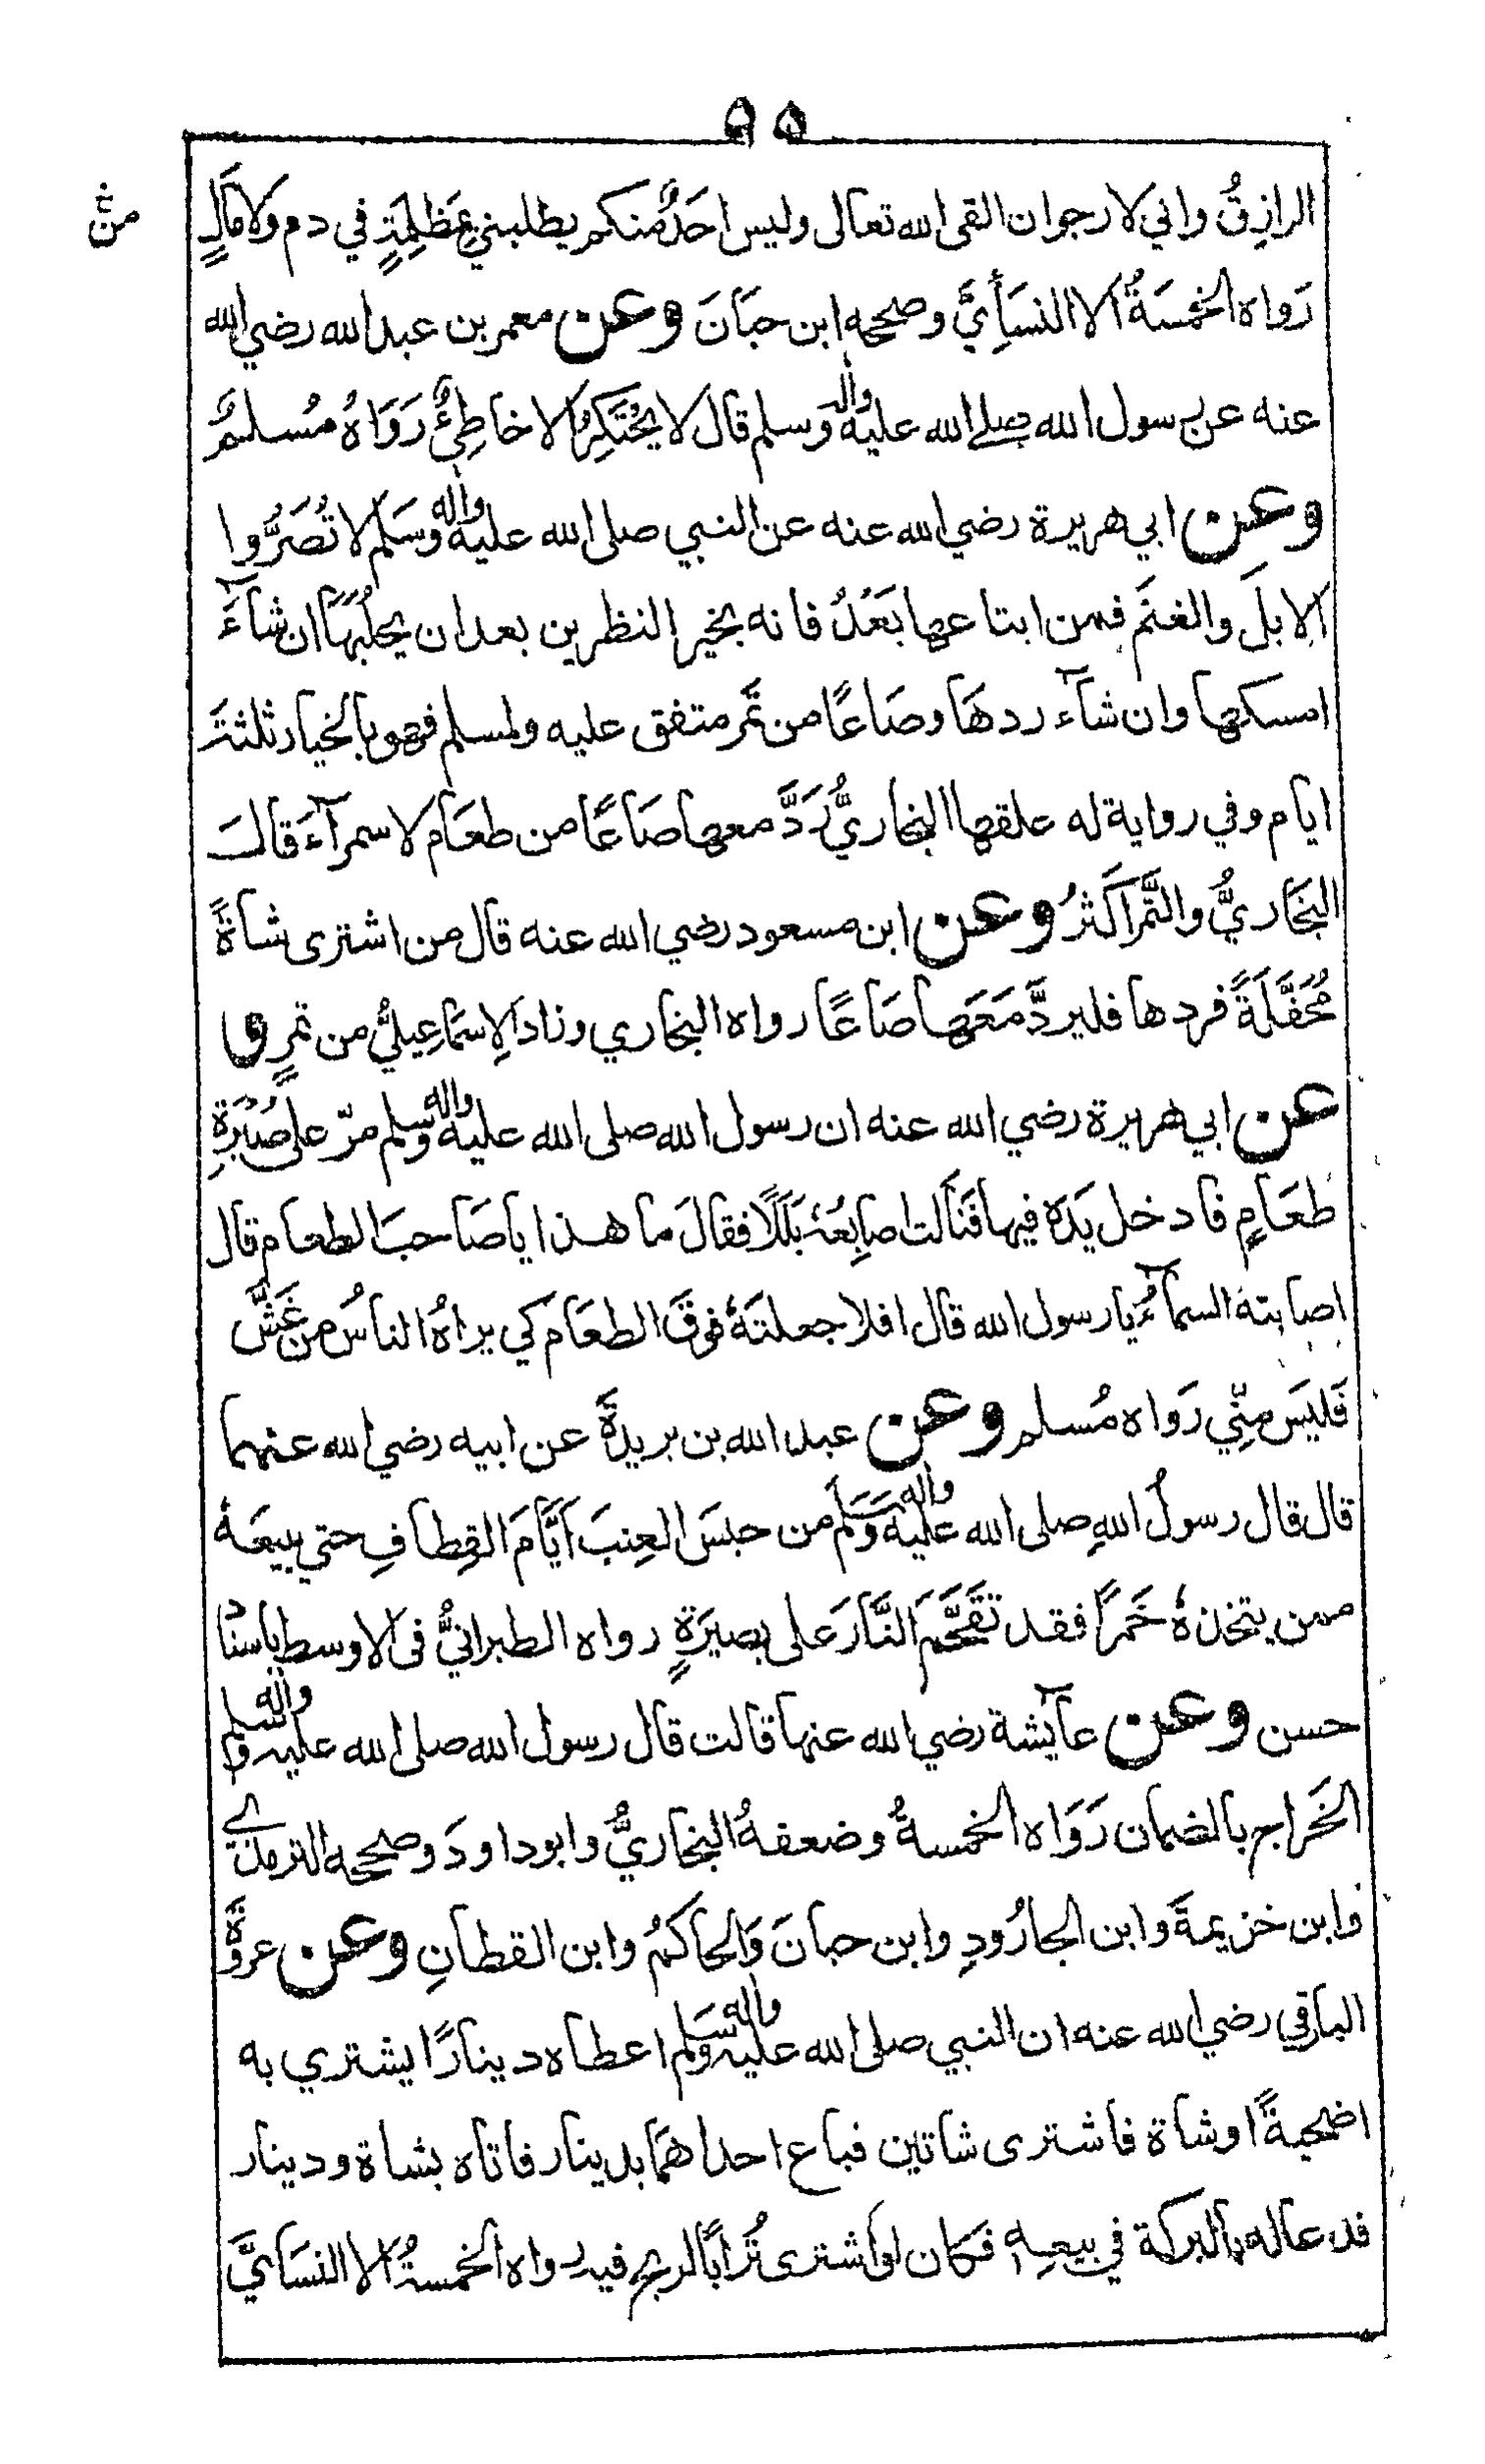 ٩٥
الرازِقُ واني لارجوان القى الله تعالى وليس احَدٌ منكم يطلبني بمَظلِمَةٍ في دم ولا مَالٍ
منۼ
رَواه الخمسَةُ الا النسَأِيَّ وصححه ابن حبَانَ وعن معمر بن عبدالله رضي الله
عنه عن رسول الله صلے الله عليه واله وسلم قال لا يحْتَكِرُ الا خاطِئٌ رَوَاهُ مُسلمٌ
وعن ابي هريرة رضي الله عنه عن النبي صلى الله عليه واله وسَلم لا تُصَرُّوا
الابلَ والغنَم فمن ابتاعها بَعْدُ فانه بخير النظرين بعد ان يحلُبَهَا ان شآءَ
امسكها وان شآء ردهَا وصَاعًا من تَمر متفق عليه ولمسلم فهو بالخيار ثلثةَ
ايام وفي رواية له علقها البخاريُّ رَدَّ معها صَاعًا من طعَام لا سمرآءَ قالَ
البخَاريُّ والتَّمر اكَثرُ وعن ابن مسعود رضي الله عنه قال من اشترى شاةً
مُحَفَّلَةً فردها فليردَّ مَعَها صَاعًا رواه البخاري وزاد الاِسمَاعِيليُّ من تمرٍ و
عن ابي هريرة رضي الله عنه ان رسول الله صلى الله عليه واله وسلم مرّ على صُبْرَةِ
طعَامٍ فادخل يَدَه فيها فنَالت اصابِعُهٗ بَلَلًا فقالَ ما هذا ياصَاحبَ الطعام قال
اصابته السمآءُ يارسول الله قال افلا جعلتَهٗ فوقَ الطعَام كي يراهُ الناسُ من غَشَّ
فَليَس مِنّي رَواه مُسلم وعن عبد الله بن بريدَةَ عن ابيه رضي الله عنهما
قال قال رسولُ اللهِ صلى الله عليه واله وَسَلَّم من حبسَ العِنبَ اَيَّامَ القِطافِ حتي يبيعَهٗ
ممن يتخذهٗ خَمرًا فقد تقَحَّمَ النَّارَ على بصيرَةٍ رواه الطبرانيُّ فى الاوسط باسناد
حسن وعن عآيشة رضي الله عنها قالت قال رسول الله صلى الله عليه واله وسلم
الخَراج بالضمان رَوَاه الخمسةُ وضعفهُ البخاريُّ وابوداودَ وصححه الترمذے
وابن خزيمةَ وابن الجارُودِ وابن حبانَ وَالحاكمُ وابن القطانِ وعن عروَةَ
البارقي رضي الله عنه ان النبي صلى الله عليه واله وسلم اعطاه دينارًا يشتري به
اضحيةً اوشاة فاشترى شاتين فباع احداهمَا بدينار فاتاه بشاة ودينار
فدعاله بالبركة في بيعهٖ فكان لو اشترى تُرابًا لربح فيه رواه الخمسةُ الا النسَايَّ